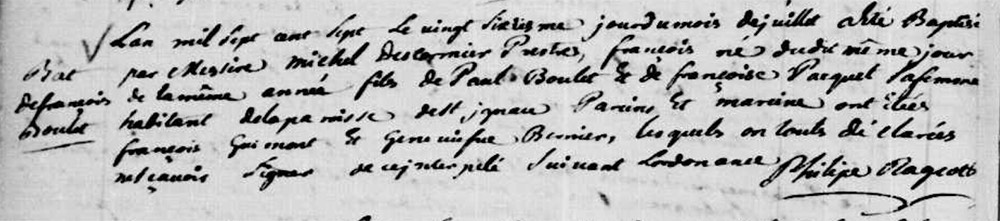 Lan mil sept cent sept le vingt sixiesme jour du mois de juillet a été Baptisé
par Messire michel Descormier Prestre, francois né dudit même jour
de la même année fils de Paul Boulet Et de francoise Paquet sa femme
habitant de la paroisse de st ignace Parins Et mareine ont étées
francois Guimont Et Geneviefve Bernier, lesquels on touts dé clarées
ne sçavoir signer de ce jnterpelé suivant Lordonance Philipe Rageott
Bat
de francois
Boulet